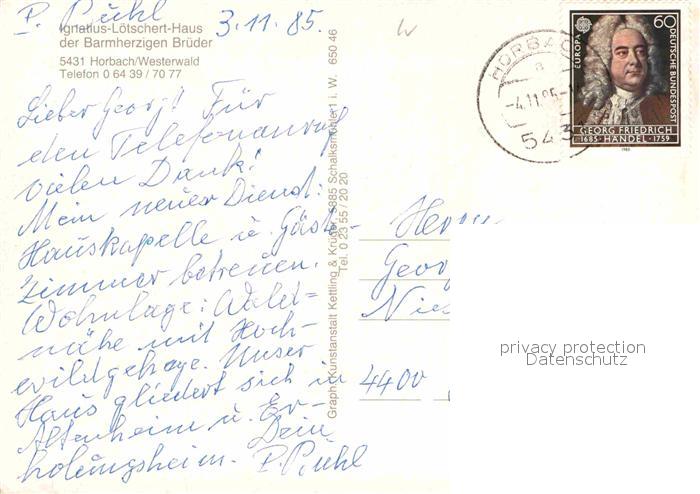 P. Pühl
3.11.85.
Ignatius-Lötschert-Haus
der Barmherzigen Brüder
5431 Horbach/Westerwald
Telefon 0 64 39 / 70 77
Lieber Georg! Für
den Telefonanruf
vielen Dank!
Mein neuer Dienst:
Hauskapelle u. Gäste-
zimmer betreuen.
Wohnlage: Wald=
nähe mit Hoch-
wildgehege. Unser
Haus gliedert sich in
Altenheim u. Er-
holungsheim. Dein
P. Pühl
Graph. Kunstanstalt Kettling & Krüger, 5885 Schalksmühle 1 i. W. 650 46
Tel. 0 23 55 / 20 20
HORBACH
a
-4.11.85-
543
EUROPA
60
DEUTSCHE BUNDESPOST
GEORG FRIEDRICH
1685 · HÄNDEL · 1759
1985
Herrn
Georg
Nie
4400
privacy protection
Datenschutz